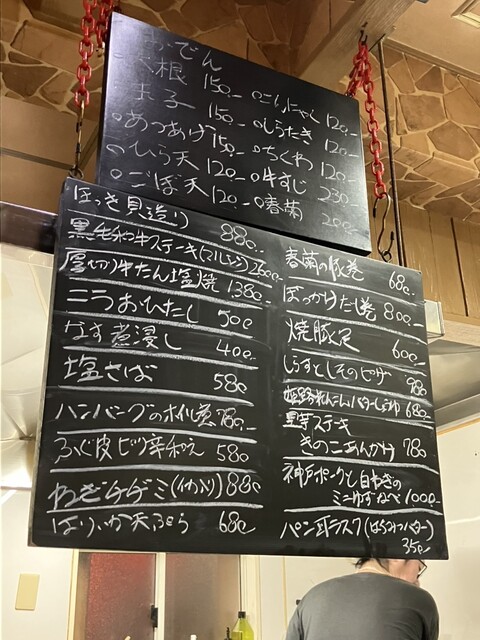 おでん
大根 150- ○こんにゃく 120-
玉子 150- ○しらたき 120-
○あつあげ 150- ○ちくわ 120-
○ひら天 120- ○牛すじ 230-
○ごぼ天 120- ○春菊 200-
ほっき貝造り 880-
黒毛和牛ステーキ(マルシン) 2600-
厚切り牛たん塩焼 1380-
ニラおひたし 500
なす煮浸し 400-
塩さば 580
ハンバーグのホイル蒸 780-
ふぐ皮ピリ辛和え 580
ねぎチヂミ(イカ入り) 880
はりいか天ぷら 680
春菊の豚巻 680
ぼっかけだし巻 800-
焼豚足 600-
しらすとしそのピザ 980
バターしょうゆ 680-
ステーキ
きのこあんかけ 780
神戸ポークと白ねぎの
ミニゆずなべ 1000-
パン耳ラスク(はちみつバター)
350